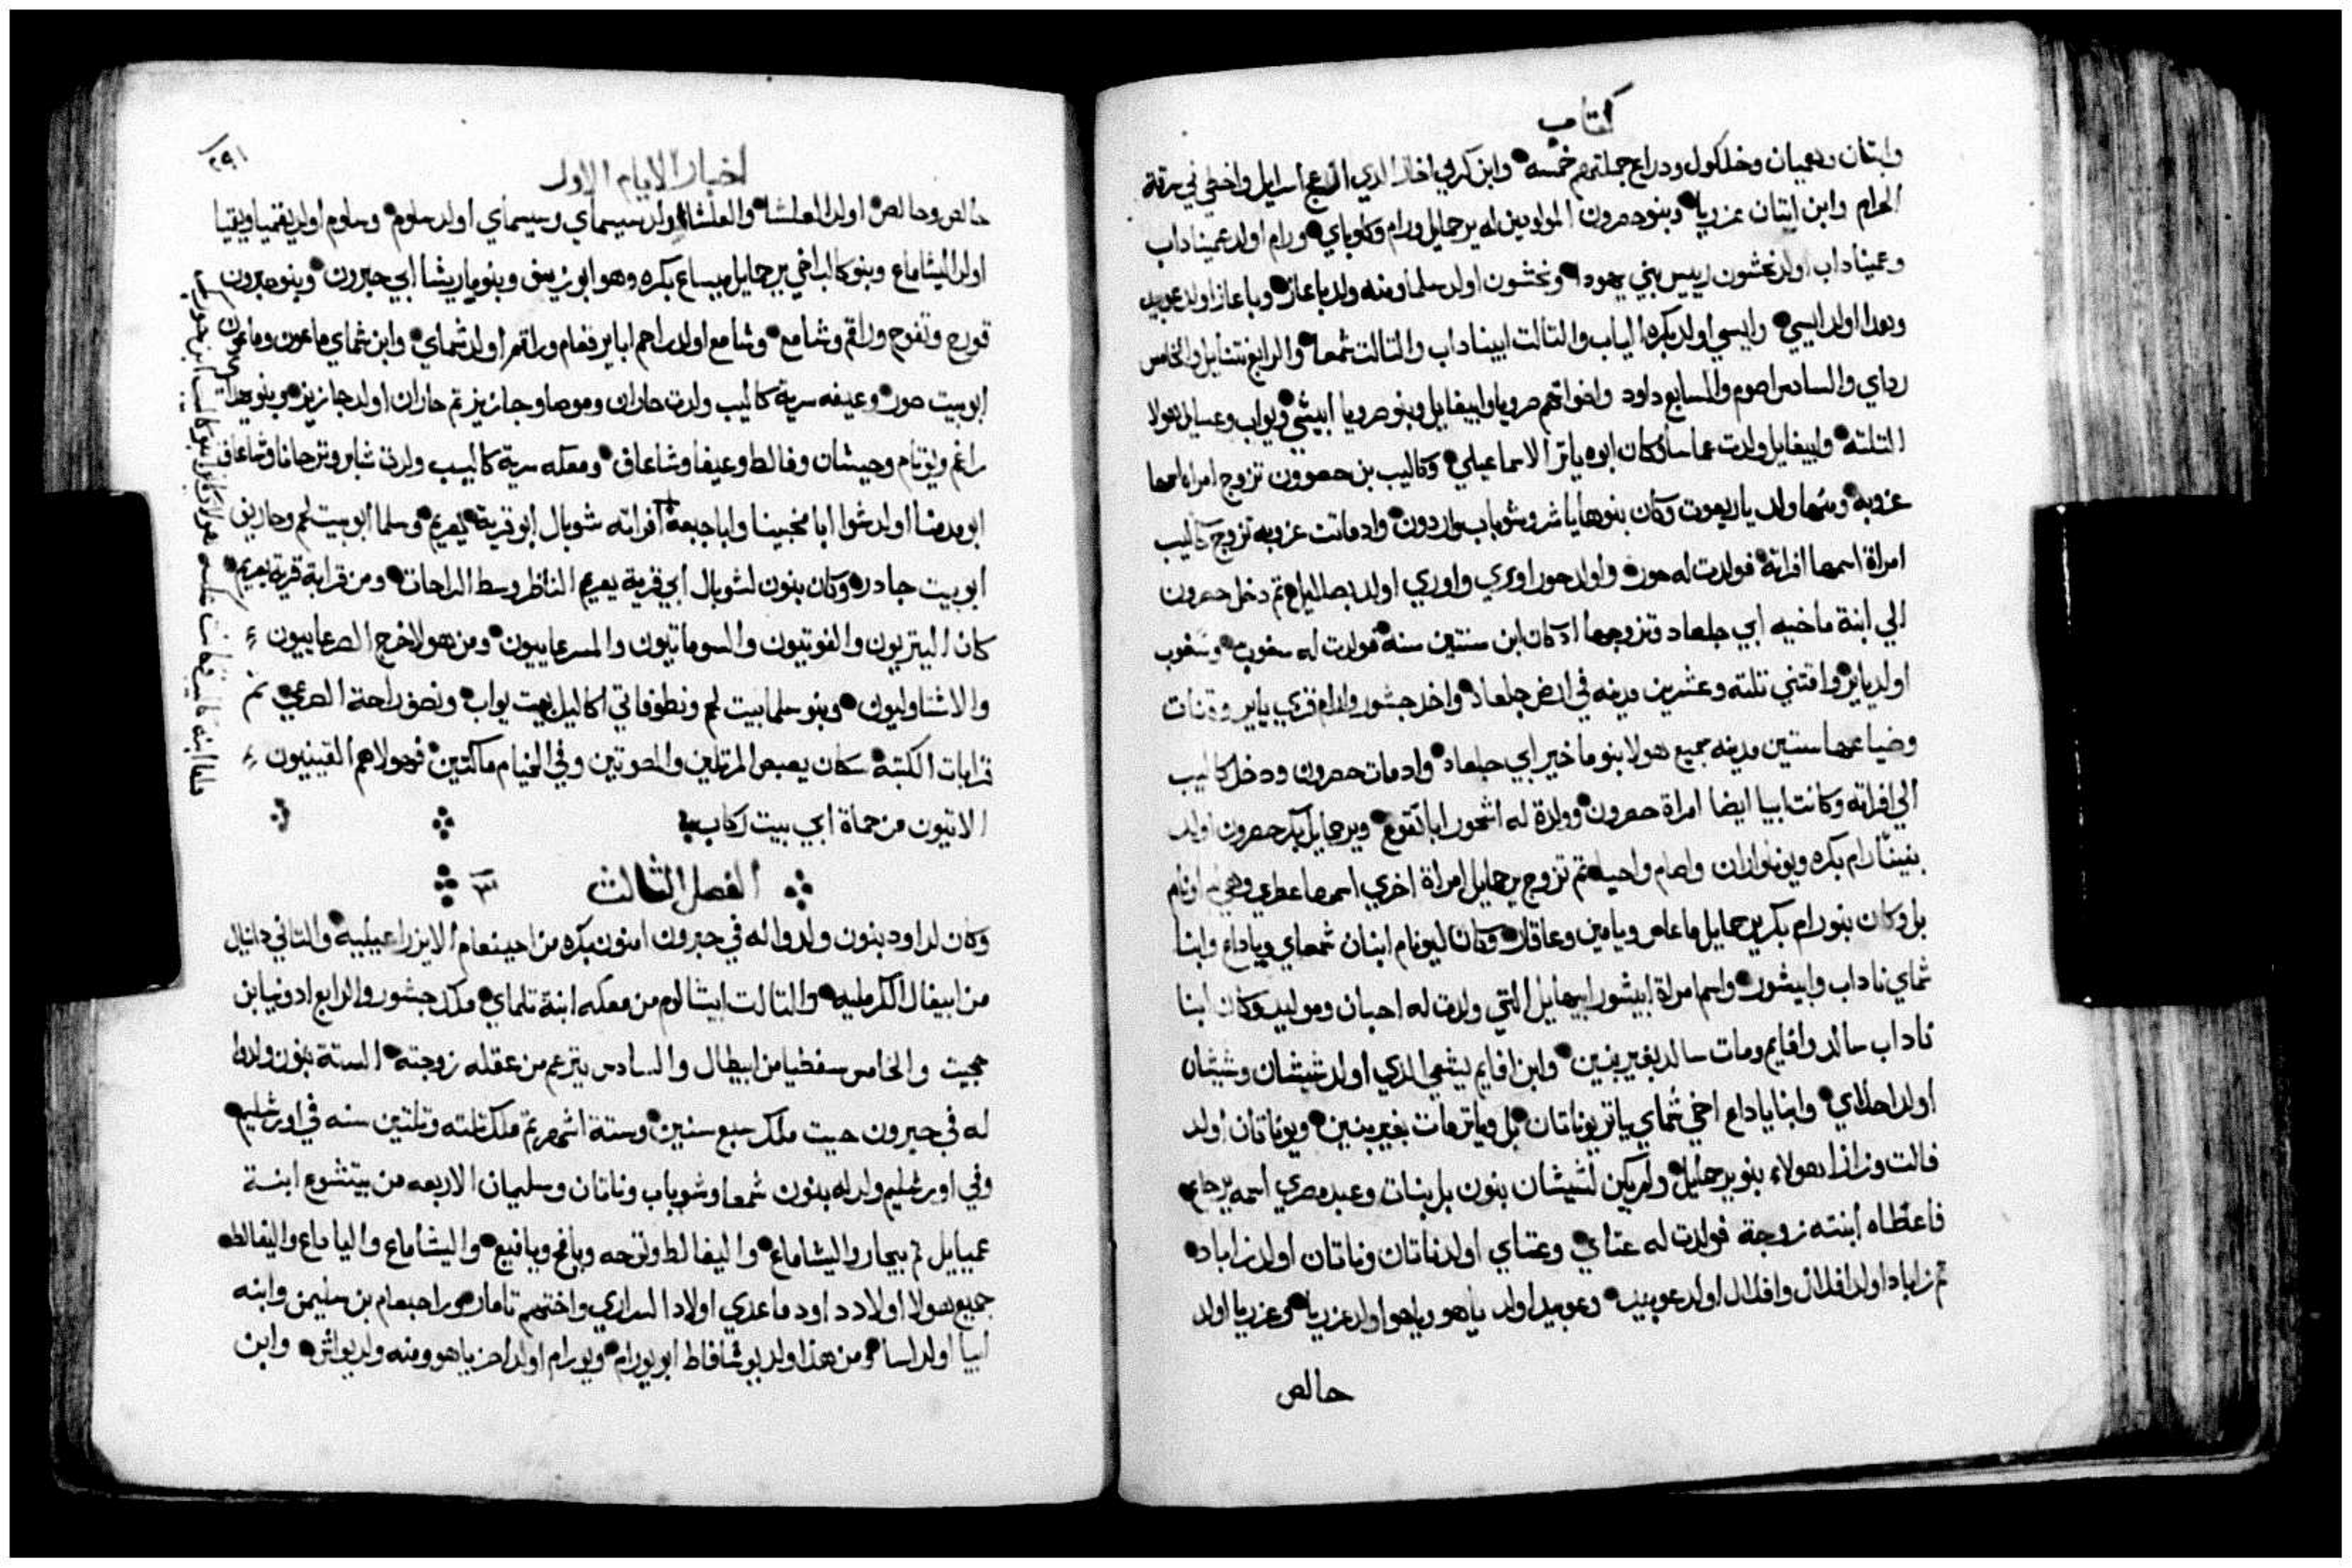 كتاب
وايتان وهيمان وخلكول ودراع جملتهم خمسه وابن كرمي اخار الذي ازعج اسرايل واخطي في سرقة
الحرام وابن ايتان عزريا وبنو حصرون المولودين له يرحمايل ورام وكلوباي ورام اولد عميناداب
وعميناداب اولد نحشون رييس بني يهودا ونحشون اولد سلما ومنه ولد باعاز وباعاز اولد عوبيد
وهدا اولد ايسي وايسي اولد بكره الياب والتاني ابيناداب والتالت شمعا والرابع نتنايل والخامس
رداي والسادس اصوم والسابع داود واخواتهم صرويا وابيغايل وبنو صرويا ابيشي ويواب وعسايل هولا
التلته وابيغايل ولدت عماسا وكان ابوه ياتر الاسماعيلي وكاليب بن حصرون تزوج امراه اسمها
عزوبه ومنها ولد ياريعوت وكان بنوها ياشر وشوباب واردون واد ماتت عزوبه تزوج كاليب
امراة اسمها افراته فولدت له حور واولد حور اوري واوري اولد بصلايل تم دخل حصرون
الي ابنة ماخيه ابي جلعاد وتزوجها اد كان ابن ستين سنه فولدت له سغوب وسغوب
اولد ياير واقتني تلته وعشرين مدينه في ارض جلعاد واخد جشور وارام قري ياير وقنات
وضياعها ستين مدينه جميع هولا بنو ماخير ابي جلعاد واد مات حصرون ودخل كاليب
الي افراته وكانت ابيا ايضا امراة حصرون وولدة له اشحور ابا تقوع ويرحمايل بكر حصرون اولد
بنينا رام بكره وبونا واران واصام واحيا تم تزوج يرحمايل امراة اخري اسمها عطري وهي ام اونام
بل وكان بنو رام بكر يرحمايل ماعاص ويامين وعاقار وكان ليونام ابنان شمعاي وياداع وابنا
شماي ناداب وابيشور واسم امراة ابيشور ابيهايل التي ولدت له احبان وموليد وكان ابنا
ناداب سالد وافايم ومات سالد بغير بنين وابن افايم يشعي الذي اولد شيشان وشيشان
اولد احلاي وابنا ياداع اخي شماي ياتر يوناتان بل وياتر مات بغير بنين ويوناتان اولد
فالت وزازا هولاء بنو يرحمايل ولم يكن لشيشان بنون بل بنات وعبد مصري اسمه يرحاع
فاعطاه ابنته زوجة فولدت له عتاي وعتاي اولد ناتان وناتان اولد زاباد
تم زاباد اولد افلال وافلال اولد عوبيد وعوبيد اولد ياهو وياهو اولد عزريا وعزريا اولد
حالص
٢٩١
اخبار الايام الاول
حالص وحالص اولد العاشا والعاشا اولد سيسماي وسيسماي اولد سلوم وسلوم اولد يقميا ويقميا
اولد اليشاماع وبنو كالب اخي يرحمايل ميساع بكره وهو ابو زيف وبنو ماريشا ابي حبرون وبنو حبرون
قورح وتفوح وراقم وشامع وشامع اولد راحم ابا يرقعام وراقم اولد شماي وابن شماي ماعون وماعون
ابو بيت صور وعيفه سرية كاليب ولدت حاران وموصا وجازيز تم حاران اولد جازيز وبنو يهداي
راغم ويوتام وجيشان وفالط وعيفا وشاعاف ومعكه سرية كاليب ولدت شابر وترحانا وشاعاف
ابو مدمنا اولد شوا ابا مخبينا وابا جبعه افراته شوبال ابو قرية يعريم وسلما ابو بيت لحم وحاريف
ابو بيت جادر وكان بنون لشوبال ابي قرية يعريم الناظر وسط الراحات ومن قرابة قرية يعريم
كان اليتريون والفوتيون والسوماتيون والمسرعاييون ومن هولا خرج الصرعاييون
والاشتاوليون وبنو سلما بيت لحم ونطوفاتي اكاليل بيت يواب ونصف راحة الصرعي تم
قرابات الكتبة سكان يعبص المرتلين والمصوتين وفي الخيام ماكتين فهولا هم القينيون
الاتيون من حماة ابي بيت ركاب
الفصل التالت ٣
وكان لداود بنون ولدوا له في حبرون امنون بكره من احينعام الايزراعيليه والتاني دانيال
من ابيغال الكرمليه والتالت ابشالوم من معكه ابنة تلماي ملك جشور والرابع ادونيا بن
حجيت والخامس سفطيا من ابيطال والسادس يترعم من عقله زوجته الستة بنون ولدوا
له في حبرون حيت ملك سبع سنين وستة اشهر تم ملك تلته وتلتين سنه في اورشليم
وفي اورشليم ولد له بنون شمعا وشوباب وناتان وسليمان الاربعه من بيتشوع ابنة
عمييل تم يبحار واليشاماع واليفالط ونوجه ونافج ويافيع واليشاماع والياداع واليفالط
جميع هولا اولاد داود ماعدي اولاد السراري واختهم تامار هو راحبعام بن سليمن وابنه
ابيا اولد اسا ومن هذا ولد يوشافاط ابو يورام ويورام اولد احزياهو ومنه ولد يواش وابن